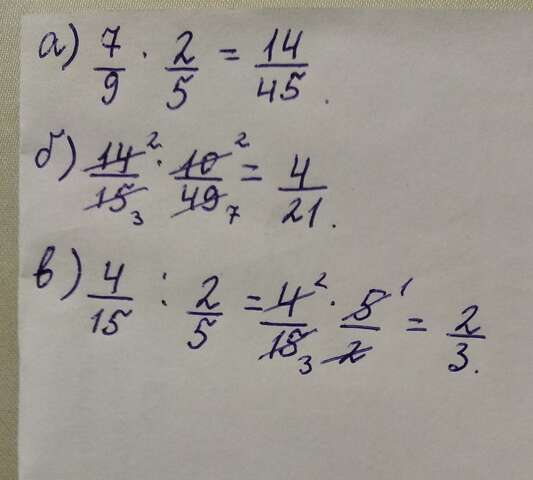 а) 7/9 · 2/5 = 14/45.
б) 14/15 · 10/49 = 4/21.
в) 4/15 : 2/5 = 4/15 · 5/2 = 2/3.